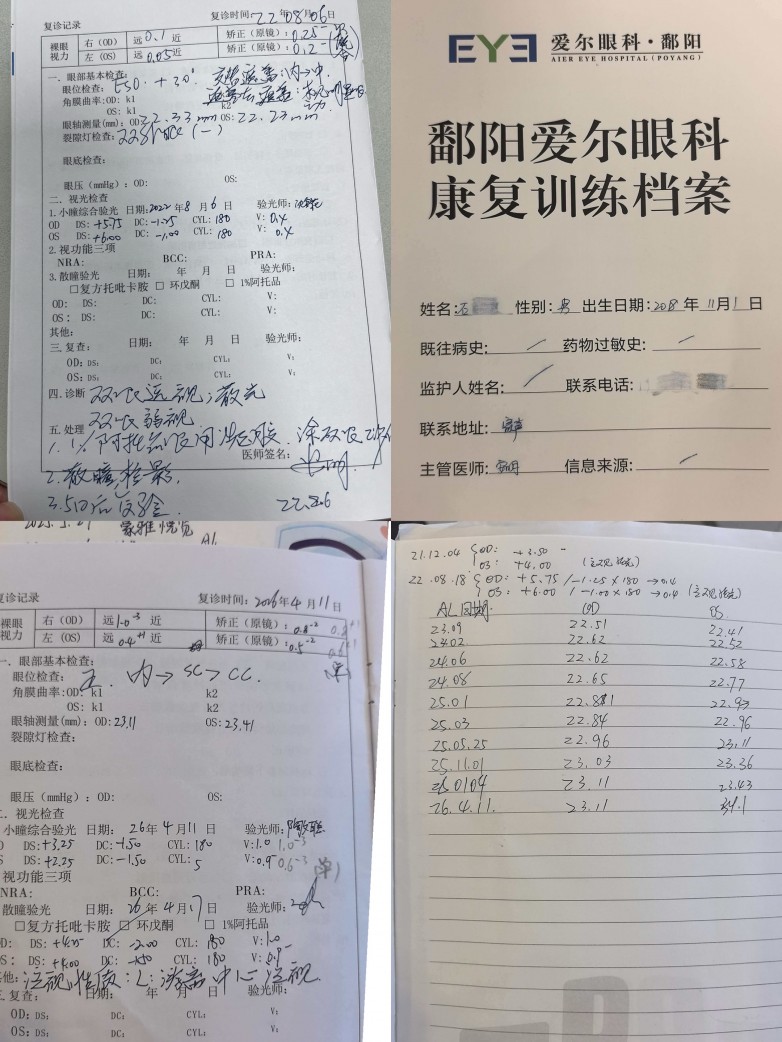 复诊记录 复诊时间:22年08月06日
裸眼视力 右(OD) 远0.1 近 矫正(原镜):0.25
左(OS) 远0.05 近 矫正(原镜):0.2
一、眼部基本检查:
眼位检查:
角膜曲率:OD: k1 k2
OS: k1
眼轴测量(mm):OD:22.33mm OS:22.23mm
裂隙灯检查: (-)
眼底检查:
眼压(mmHg):OD: OS:
二、视光检查
1.小瞳综合验光 日期:2022年8月6日 验光师:
OD DS:+5.75 DC:-1.25 CYL:180 V:0.4
OS DS:+6.00 DC:-1.00 CYL:180 V:0.4
2.视功能三项
NRA: BCC: PRA:
3.散瞳验光 日期: 年 月 日 验光师:
□复方托吡卡胺 □环戊酮 □1%阿托品
OD: DS: DC: CYL: V:
OS: DS: DC: CYL: V:
其他:
三.复查: 日期: 年 月 日 验光师:
OD:DS: DC: CYL: V:
OS:DS: DC: CYL: V:
四.诊断 双眼远视,散光
双眼弱视
五.处理 1. 1%阿托品眼用凝胶.涂双眼
医师签名:
2.散瞳检影.
3.5日后复验.
22.8.6
EYE 爱尔眼科·鄱阳
AIER EYE HOSPITAL (POYANG)
鄱阳爱尔眼科
康复训练档案
姓名: 性别:男 出生日期:2018年11月1日
既往病史: 药物过敏史:
监护人姓名: 联系电话:
联系地址:
主管医师: 信息来源:
复诊记录 复诊时间:2026年4月11日
裸眼视力 右(OD) 远1.0⁻³ 近 矫正(原镜):0.8⁻²
左(OS) 远0.4⁺¹ 近 矫正(原镜):0.5⁻²
一、眼部基本检查:
眼位检查:正. 内→SC→CC.
角膜曲率:OD: k1 k2
OS: k1 k2
眼轴测量(mm):OD:23.11 OS:23.41
裂隙灯检查:
眼底检查:
眼压(mmHg):OD: OS:
二、视光检查
小瞳综合验光 日期:26年4月11日 验光师:
DS:+3.25 DC:-1.50 CYL:180 V:1.0 1.0⁻³
S DS:+2.25 DC:-1.50 CYL:5 V:0.9 0.6⁻³
视功能三项
NRA: BCC: PRA:
散瞳验光 日期:26年4月17日 验光师:
□复方托吡卡胺 □环戊酮 □1%阿托品
DS: DC:-2.00 CYL:180 V:1.0
DS:+4.00 DC:-1.50 CYL:180 V:0.9⁻
其他:注视性质:L:旁中心注视
三.复查: 日期: 年 月 日 验光师:
OD:DS: DC: CYL: V:
OS:DS: DC: CYL: V:
21.12.04 {OD: +3.50 -
OS: +4.00 (主观验光)
22.08.18 {OD: +5.75/-1.25×180→0.4
OS: +6.00/-1.00×180→0.4 (主观验光)
AL日期 OD OS
23.09 22.51 22.41
24.02 22.62 22.52
24.06 22.62 22.58
24.08 22.65 22.77
25.01 22.81 22.93
25.03 22.84 22.96
25.05.25 22.96 23.11
25.11.01 23.03 23.36
260104 23.11 23.43
26.4.11. 23.11